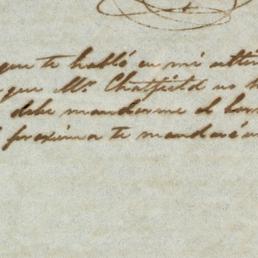 que te hablé en mi
que Mr. Chatfield no
debe mandarme el
proxima te mandaré